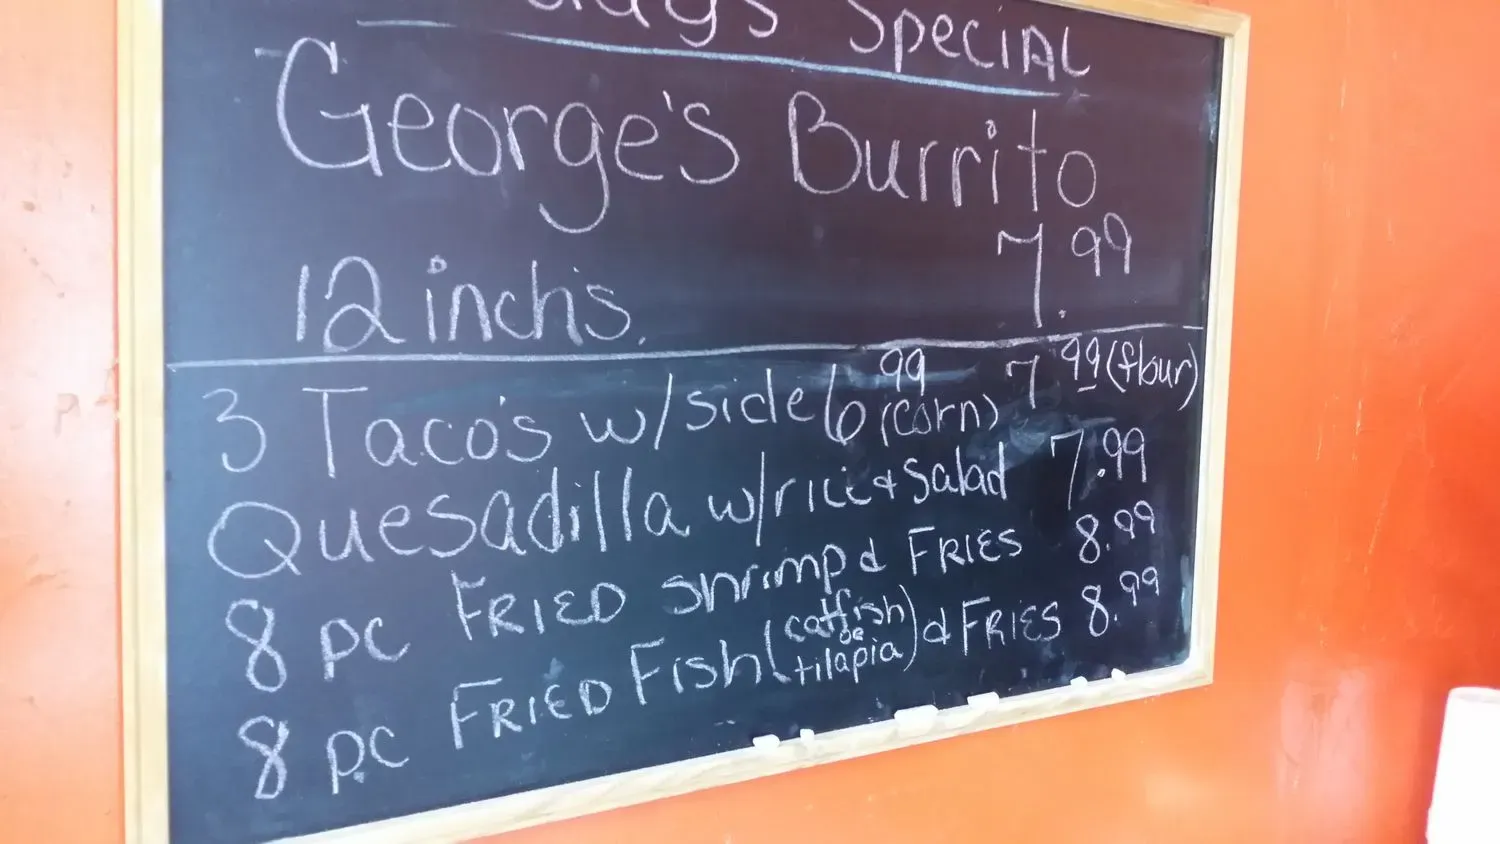 Special
George's Burrito
12 inch's. 7.99
3 Taco's w/side 6 99 (corn) 7 99 (flour)
Quesadilla w/rice + Salad 7.99
8 pc Fried shrimp & Fries 8.99
8 pc Fried Fish (catfish or tilapia) & Fries 8.99